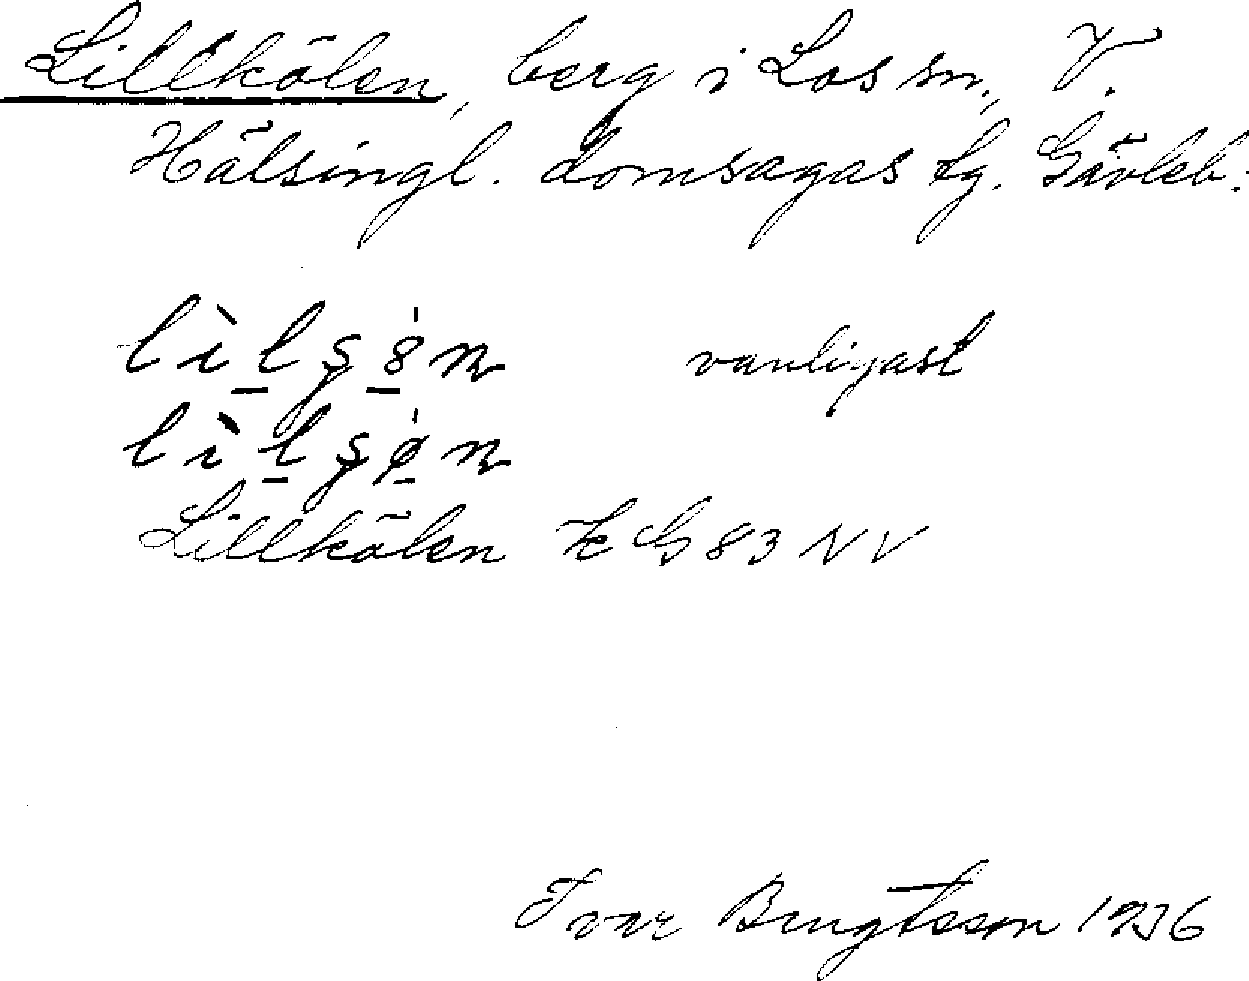 Lillkölen, berg i Los sn., V.
Hälsingl. domsagas tg. Gävleb:
vanligast
Lillkölen K G 83 NV
Ivar Bengtsson 1936